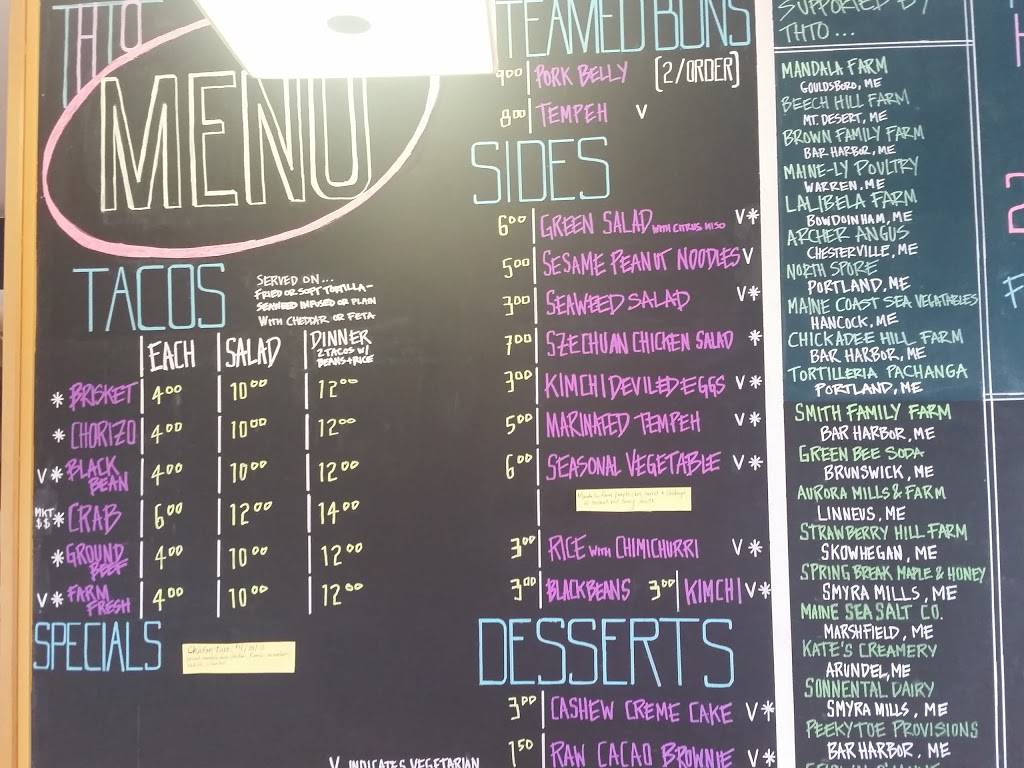 THTO
MENU
TACOS
SERVED ON...
FRIED OR SOFT TORTILLA-
SEAWEED INFUSED OR PLAIN
WITH CHEDDAR OR FETA
EACH SALAD DINNER
2 TACOS W/
BEANS+RICE
* BRISKET 4.00 10.00 12.00
* CHORIZO 4.00 10.00 12.00
V* BLACK BEAN 4.00 10.00 12.00
MKT. $$* CRAB 6.00 12.00 14.00
* GROUND BEEF 4.00 10.00 12.00
V* FARM FRESH 4.00 10.00 12.00
SPECIALS
V INDICATES VEGETARIAN
TEAMED BUNS
9.00 PORK BELLY [2/ORDER]
8.00 TEMPEH V
SIDES
6.00 GREEN SALAD WITH CITRUS MISO V*
5.00 SESAME PEANUT NOODLES V
3.00 SEAWEED SALAD V*
7.00 SZECHUAN CHICKEN SALAD *
3.00 KIMCHI DEVILED EGGS V*
5.00 MARINATED TEMPEH V*
6.00 SEASONAL VEGETABLE V*
3.00 RICE WITH CHIMICHURRI V*
3.00 BLACK BEANS 3.00 KIMCHI V*
DESSERTS
3.00 CASHEW CREME CAKE V*
1.50 RAW CACAO BROWNIE V*
SUPPORTED BY
THTO...
MANDALA FARM
GOULDSBORO, ME
BEECH HILL FARM
MT. DESERT, ME
BROWN FAMILY FARM
BAR HARBOR, ME
MAINE-LY POULTRY
WARREN, ME
LALIBELA FARM
BOWDOINHAM, ME
ARCHER ANGUS
CHESTERVILLE, ME
NORTH SPORE
PORTLAND, ME
MAINE COAST SEA VEGATABLES
HANCOCK, ME
CHICKADEE HILL FARM
BAR HARBOR, ME
TORTILLERIA PACHANGA
PORTLAND, ME
SMITH FAMILY FARM
BAR HARBOR, ME
GREEN BEE SODA
BRUNSWICK, ME
AURORA MILLS & FARM
LINNEUS, ME
STRAWBERRY HILL FARM
SKOWHEGAN, ME
SPRING BREAK MAPLE & HONEY
SMYRA MILLS, ME
MAINE SEA SALT CO.
MARSHFIELD, ME
KATE'S CREAMERY
ARUNDEL, ME
SONNENTAL DAIRY
SMYRA MILLS, ME
PEEKYTOE PROVISIONS
BAR HARBOR, ME